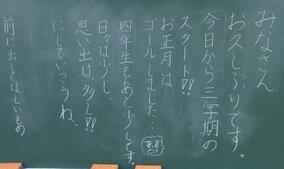 みなさん
お久しぶりです。
今日から三学期の
スタート!!
お正月は
ゴールしました…
四年生もあと少しです。
日々は少し、
思い出は、多し!!
にしていこうね。
前に出してほしいもの